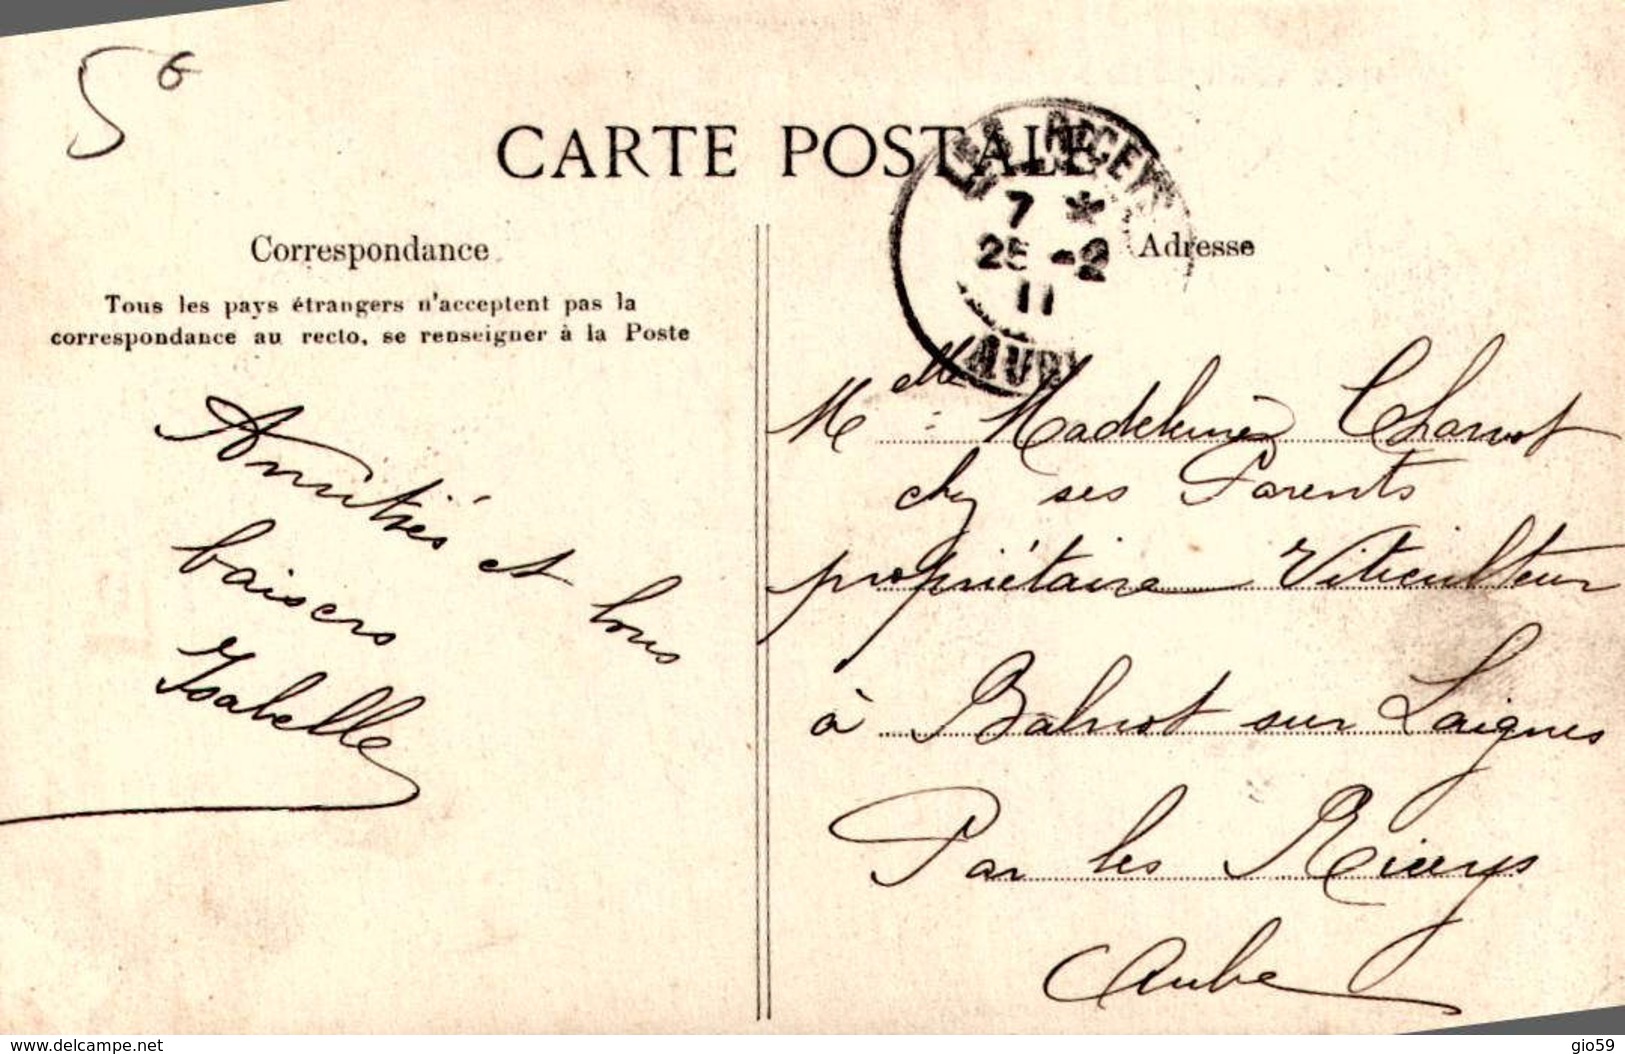 5 €
CARTE POSTALE
LES RICEYS
7 *
25 -2
11
AUBE
Correspondance
Adresse
Tous les pays étrangers n'acceptent pas la
correspondance au recto, se renseigner à la Poste
Amitiés et bons
baisers
Isabelle
Melle Madeleine Charvot
chez ses Parents
propriétaire Viticulteur
à Balnot sur Laignes
Par les Riceys
Aube
www.delcampe.net
gio59